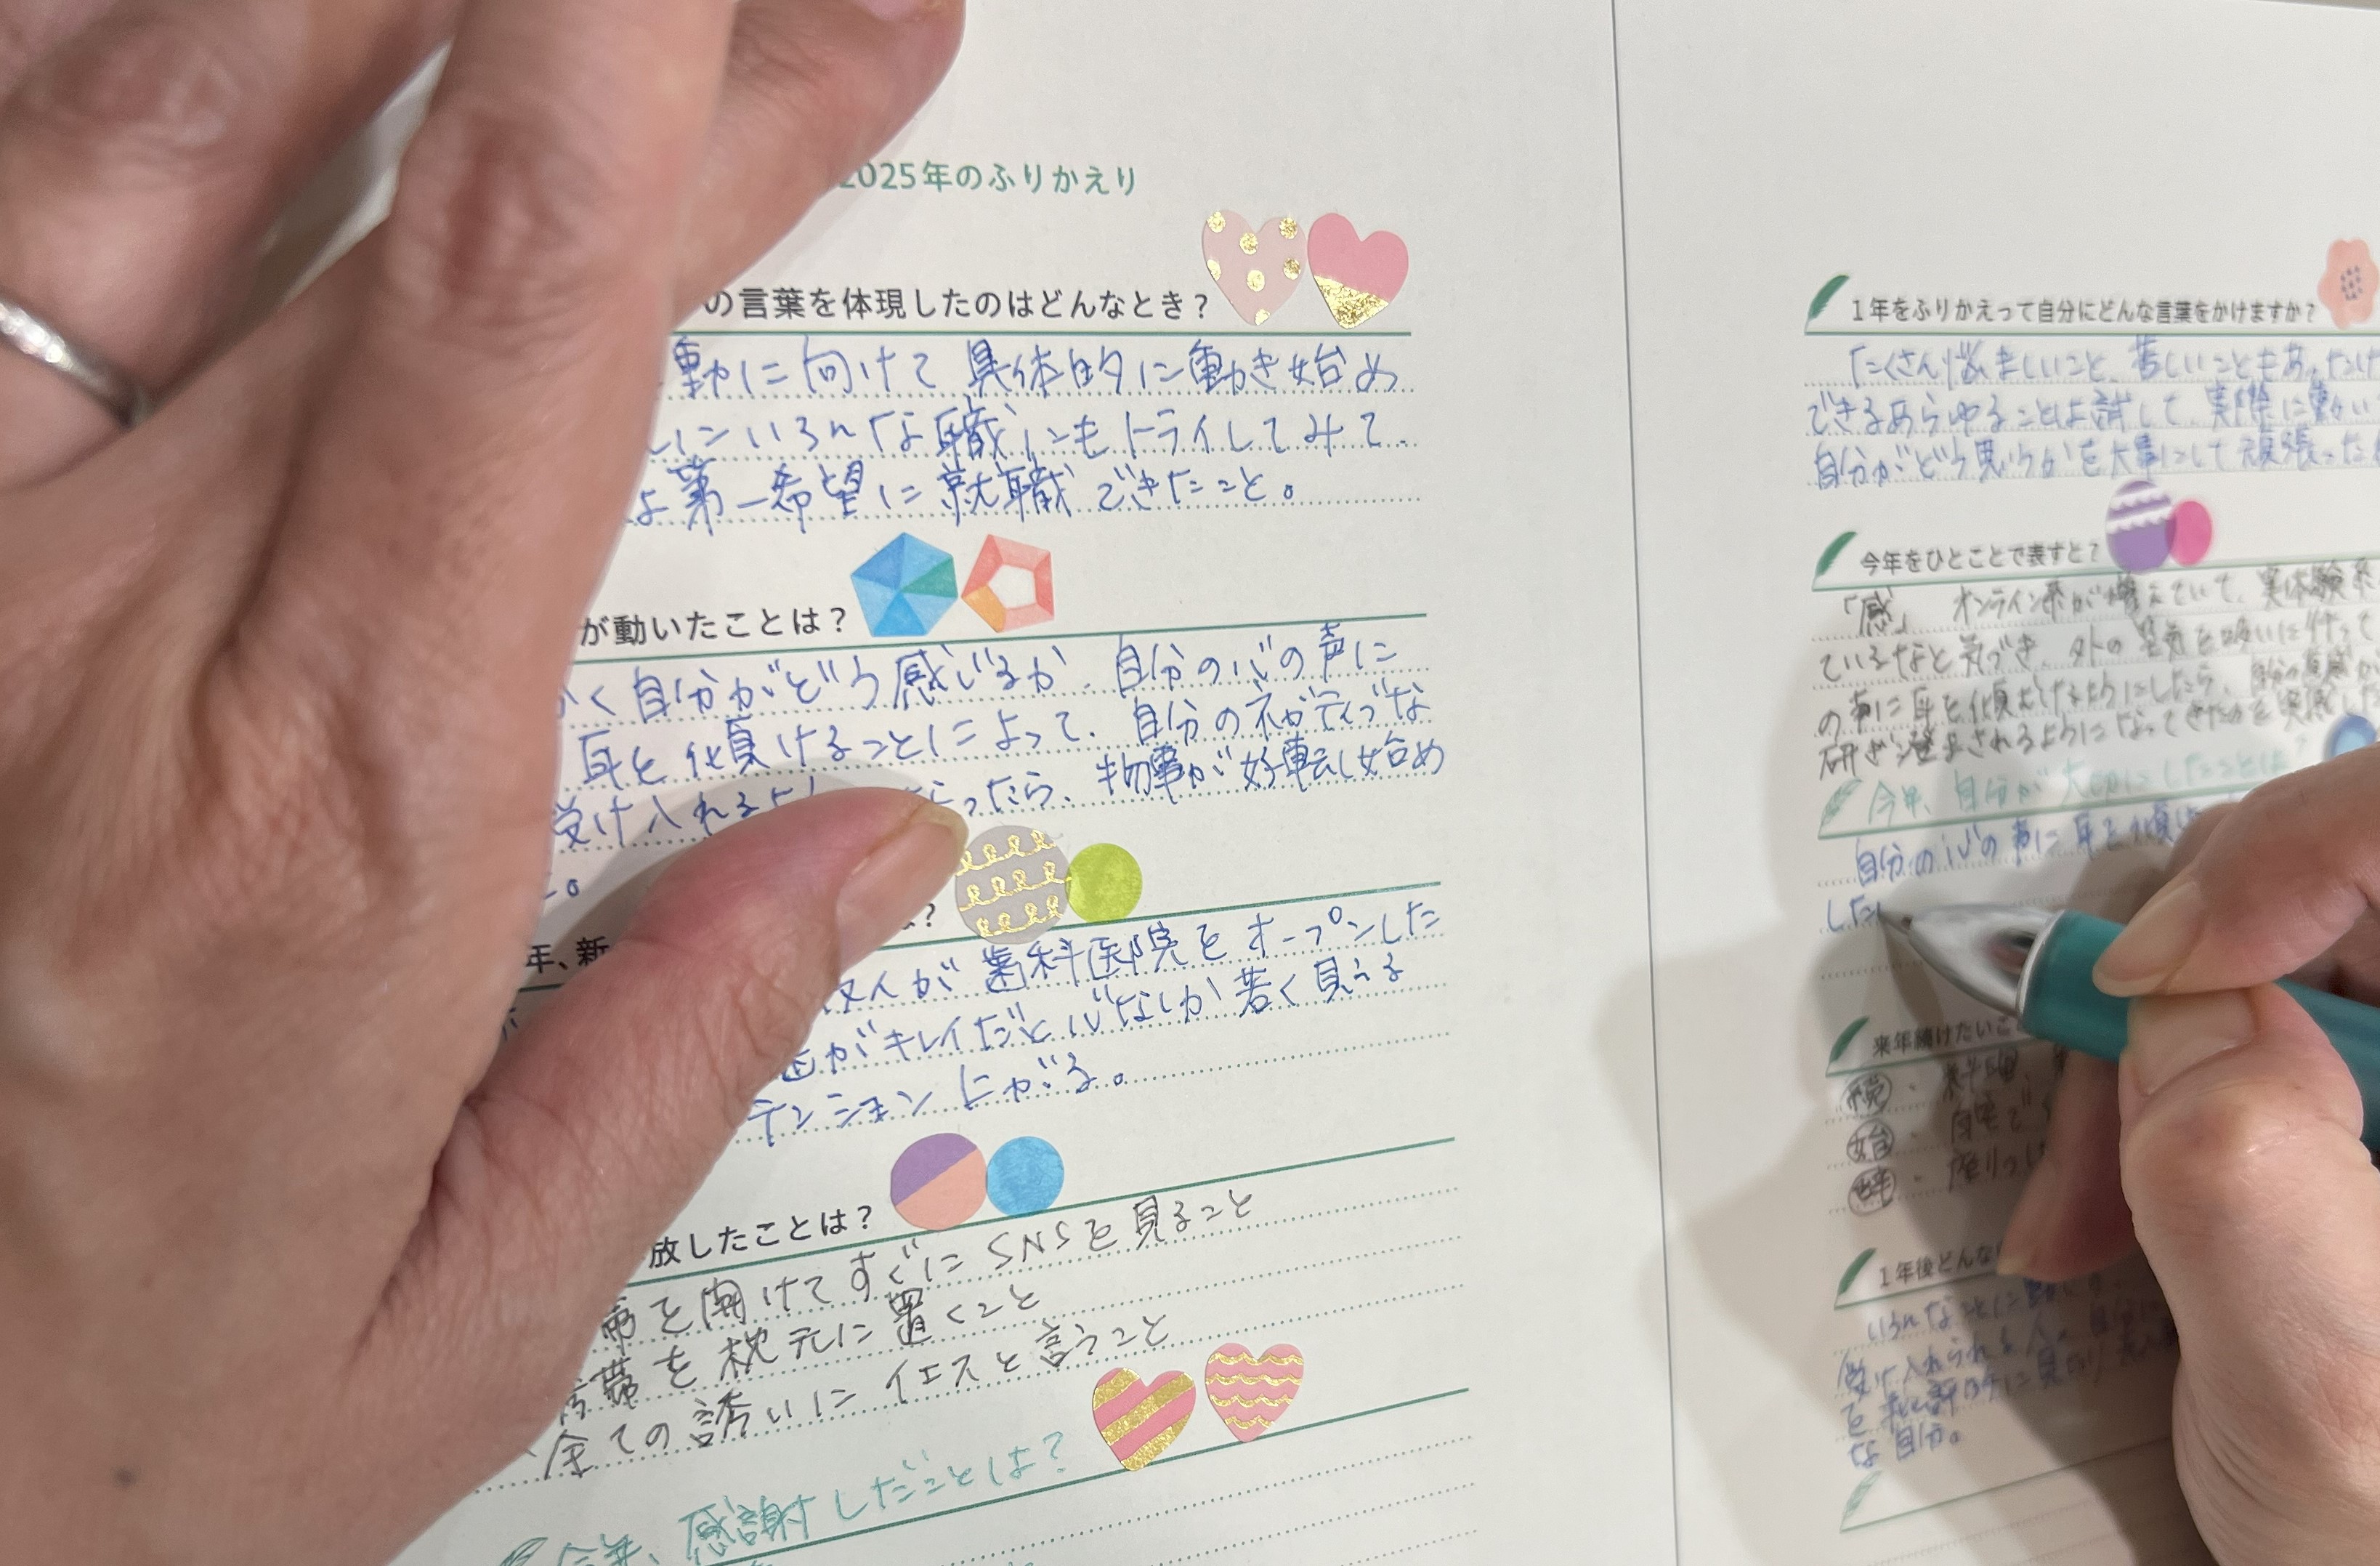 2025年のふりかえり
の言葉を体現したのはどんなとき？
動に向けて具体的に動き始め
いろんな職にもトライしてみて、
第一希望に就職できたこと。
が動いたことは？
く自分がどう感じるか、自分の心の声に
耳を傾けることによって、自分のネガティブな
受け入れる ったら、物事が好転し始め
。
年、新 ？
が歯科医院をオープンした
がキレイだと心なしか若く見える
テンション 上がる。
放したことは？
を開けてすぐにSNSを見ること
帯を枕元に置くこと
全ての誘いにイエスと言うこと
今年、感謝したことは？
1年をふりかえって自分にどんな言葉をかけますか？
「たくさん悩ましいこと、苦しいこともあったけ
できるあらゆることは試して、実際に動い
自分がどう思うかを大事にして頑張った
今年をひとことで表すと？
「感」 オンライン系が増えていて、実体験
ているなと気づき、外の空気を吸いに行って
の声に耳を傾けるようにしたら、自分の直感が
研ぎ澄まされるようになってきたのを実感した
今年、自分が大切にしたことは？
自分の心の声に耳を傾け
した
来年続けたいこ
続・
始・自宅で
辞・
1年後どんな
いろんなことに
受け入れられる人。
な自分。